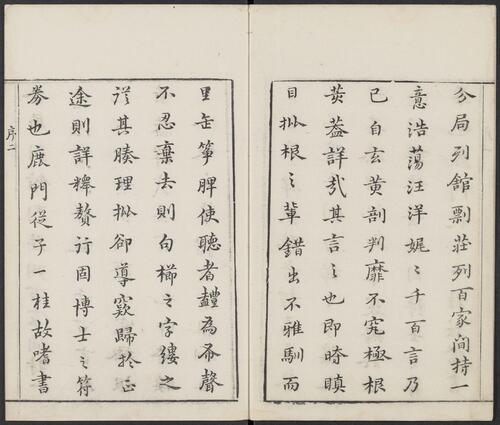 分局列舘剽莊列百家間持一
意浩蕩汪洋娓〻千百言乃
已自玄黄剖判靡不究極根
荄葢詳哉其言之也即暗瞋
目批根之軰錯出不雅馴而
里缶箏脾使聽者為希聲
不忍棄去則句櫛之字縷之
其腠理批卻導窾歸於正
途則詳繹贅行固博士之符
券也鹿門從子一桂故嗜書
序二